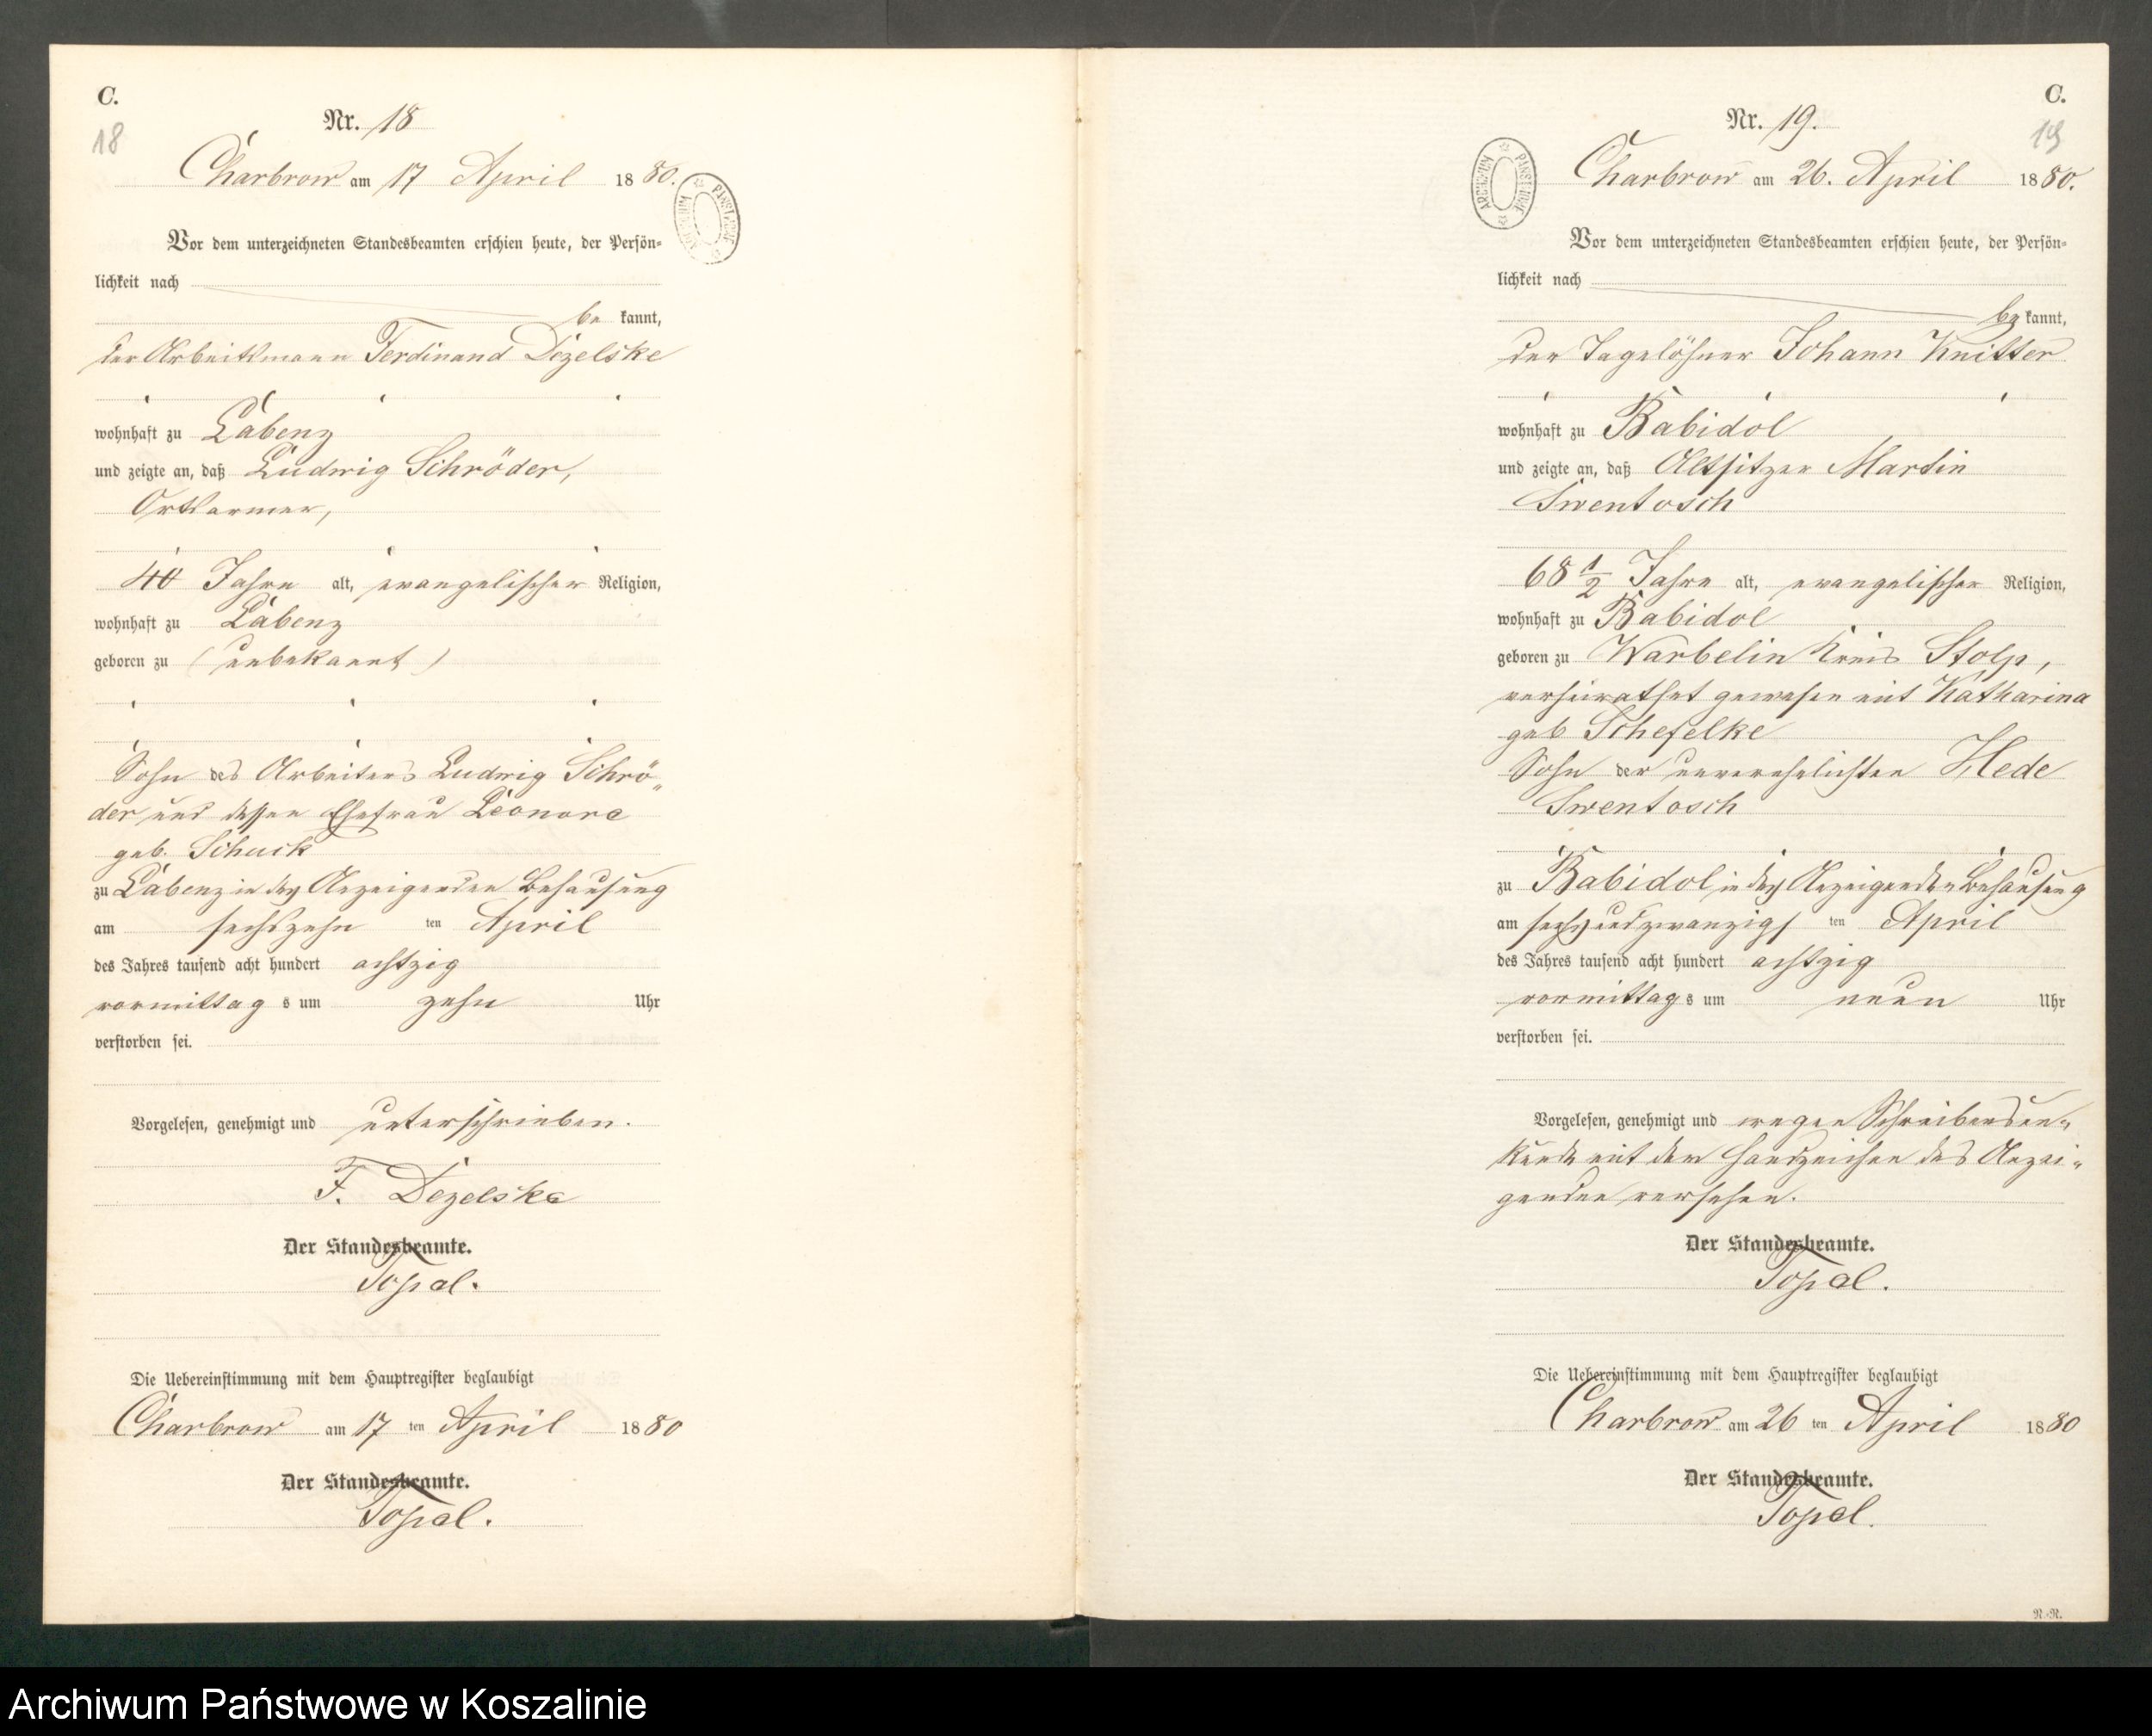 C.
18
Nr. 18
Charbrow am 17 April 1880.
ARCHIWUM PAŃSTWOWE
Vor dem unterzeichneten Standesbeamten erschien heute, der Persön-
lichkeit nach
be kannt,
der Arbeitsmann Ferdinand Dezelske
wohnhaft zu Labenz
und zeigte an, daß Ludwig Schröder,
Ortsarmer,
40 Jahre alt, evangelischer Religion,
wohnhaft zu Labenz
geboren zu (unbekannt)
Sohn des Arbeiters Ludwig Schrö-
der und dessen Ehefrau Leonore
geb. Schuck
zu Labenz in des Anzeigenden Behausung
am sechszehn ten April
des Jahres tausend acht hundert achtzig
vormittag s um zehn Uhr
verstorben sei.
Vorgelesen, genehmigt und unterschrieben.
F. Dezelske
Der Standesbeamte.
Topal.
Die Uebereinstimmung mit dem Hauptregister beglaubigt
Charbrow am 17 ten April 1880
Der Standesbeamte.
Topal.
C.
19
Nr. 19.
Charbrow am 26. April 1880.
ARCHIWUM PAŃSTWOWE
Vor dem unterzeichneten Standesbeamten erschien heute, der Persön-
lichkeit nach
be kannt,
der Tagelöhner Johann Knitter
wohnhaft zu Babidol
und zeigte an, daß Altsitzer Martin
Swentosch
68 1/2 Jahre alt, evangelischer Religion,
wohnhaft zu Babidol
geboren zu Warbelin Kreis Stolp,
verheirathet gewesen mit Katharina
geb Schefelke
Sohn der unverehelichten Hede
Swentosch
zu Babidol in des Anzeigenden Behausung
am sechsundzwanzigs ten April
des Jahres tausend acht hundert achtzig
vormittag s um neun Uhr
verstorben sei.
Vorgelesen, genehmigt und wegen Schreibensun-
kunde mit dem Handzeichen des Anzei-
genden versehen.
Der Standesbeamte.
Topal.
Die Uebereinstimmung mit dem Hauptregister beglaubigt
Charbrow am 26 ten April 1880
Der Standesbeamte.
Topal.
N.-N.
Archiwum Państwowe w Koszalinie